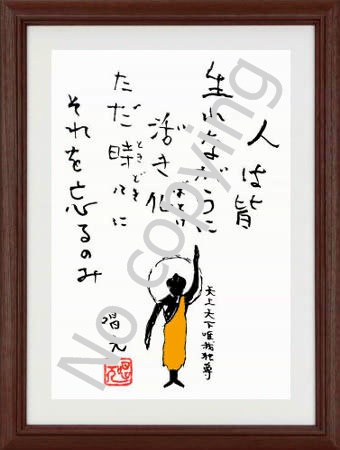 人は皆
生れながらに
活き仏
ぼとけ
ただ時々に
ときどき
それを忘るのみ
天上天下唯我独尊
No copying